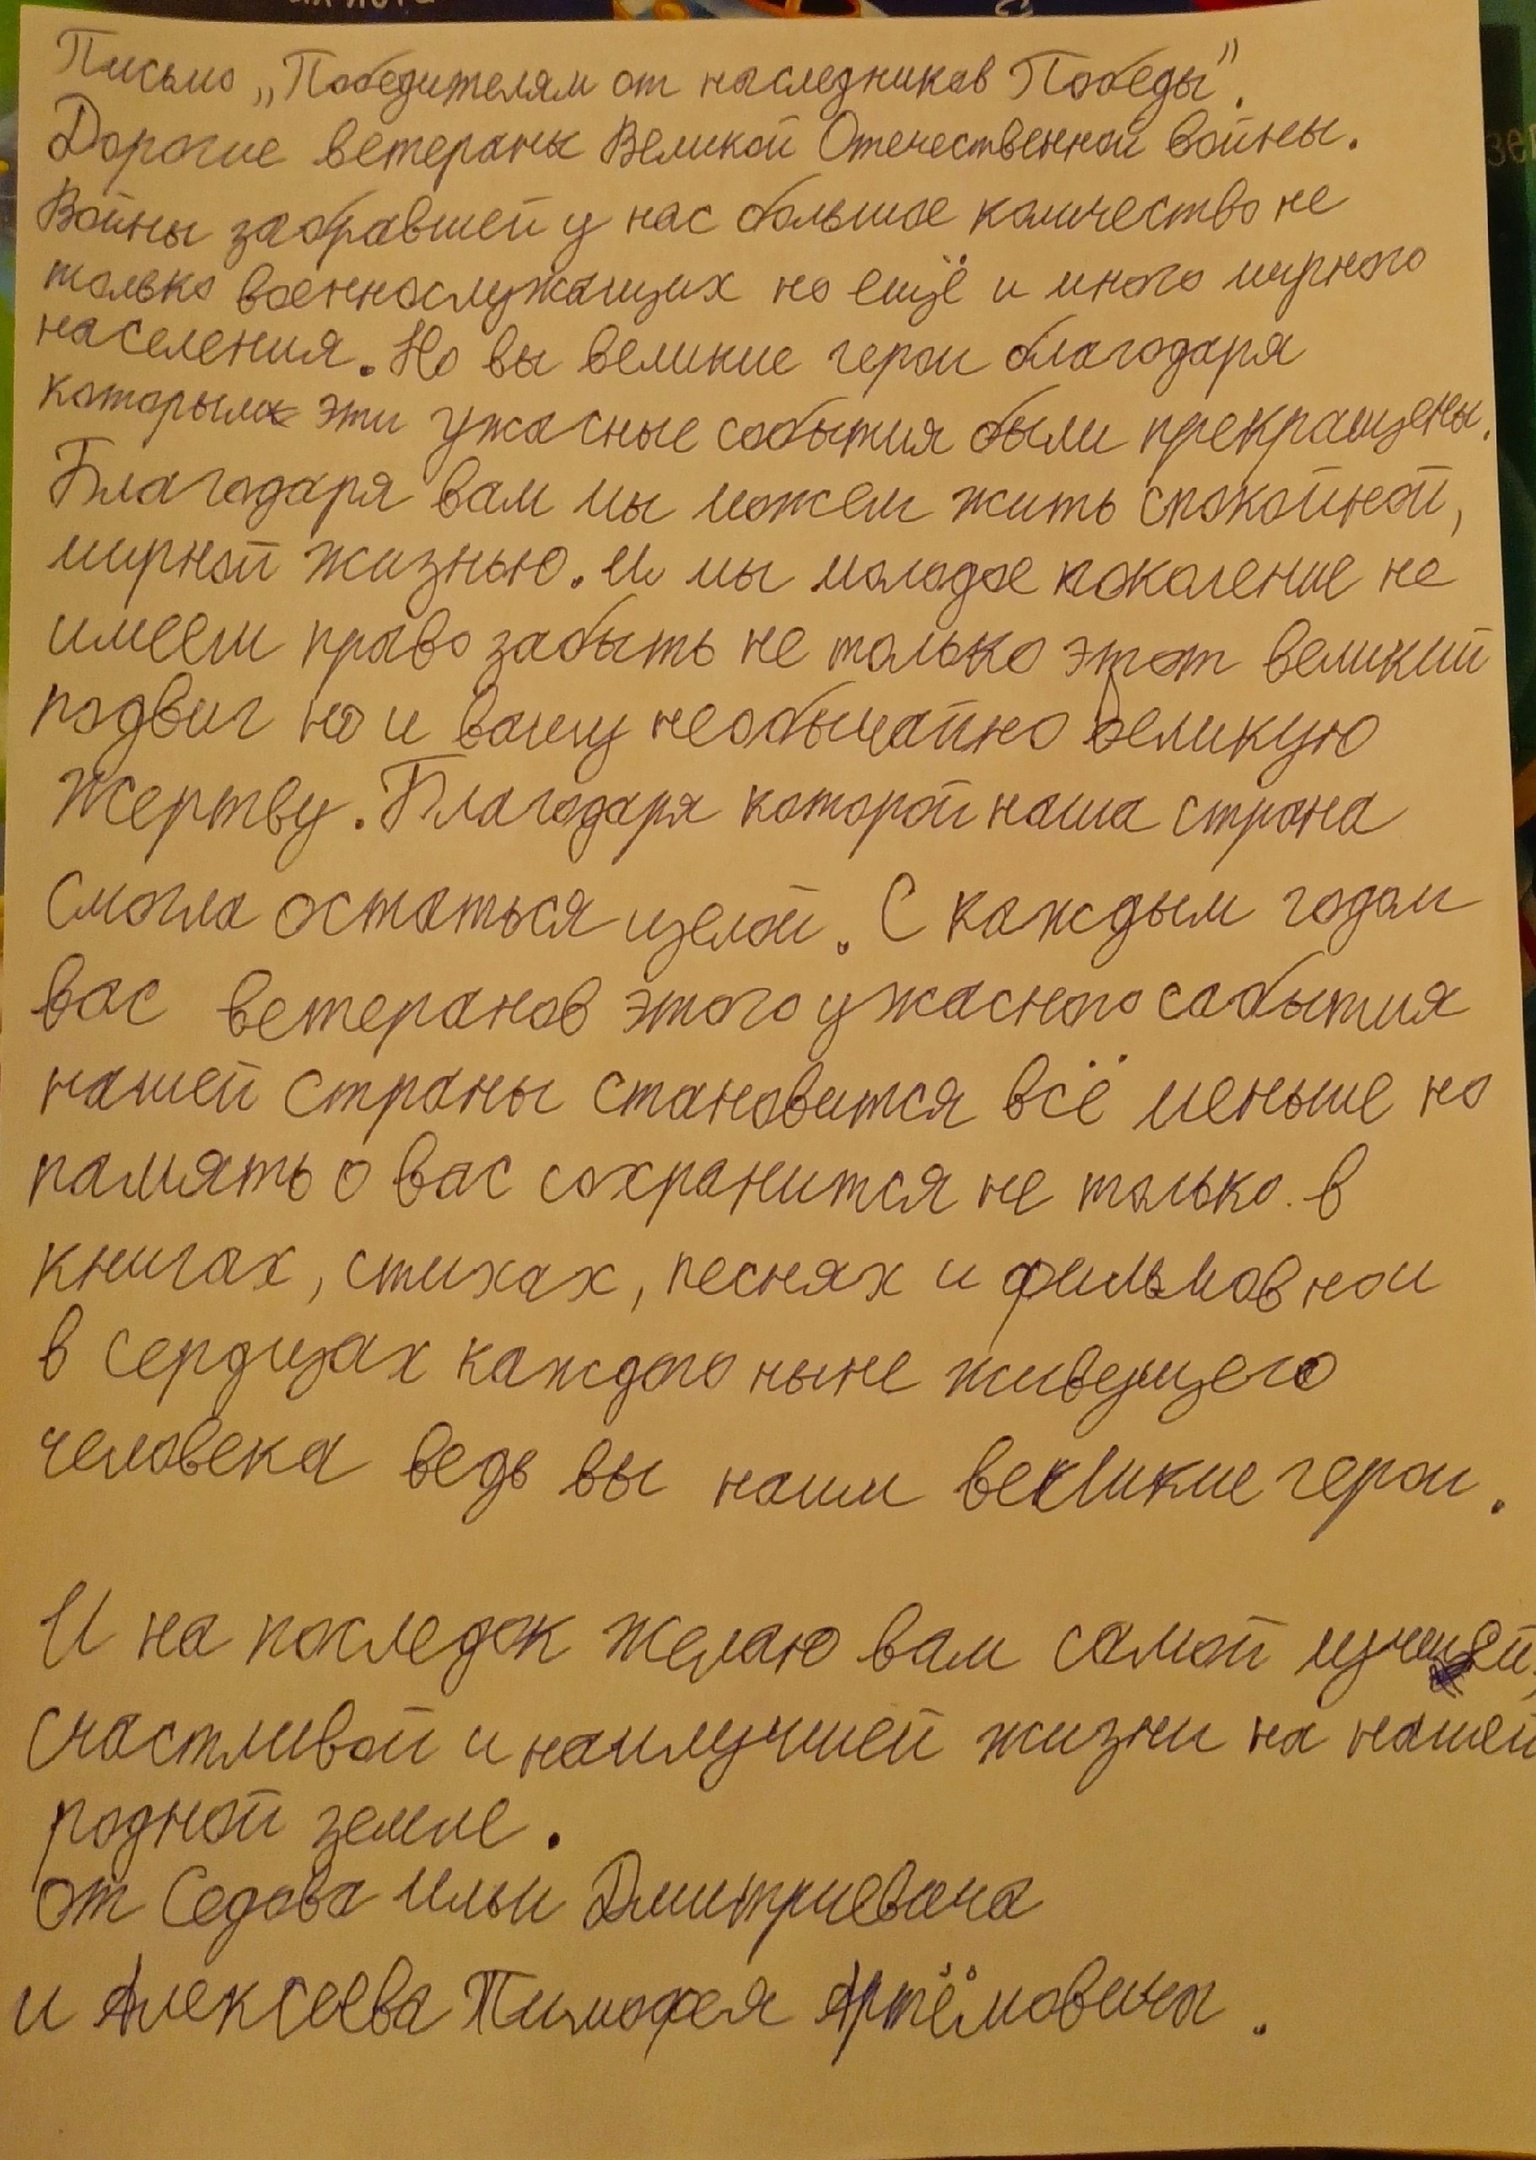 Письмо „Победителям от наследников Победы".
Дорогие ветераны Великой Отечественной войны.
Войны забравшей у нас большое количество не
только военнослужащих но ещё и много мирного
населения. Но вы великие герои благодаря
которым эти ужасные события были прекращены.
Благодаря вам мы можем жить спокойной,
мирной жизнью. И мы молодое поколение не
имеем право забыть не только этот великий
подвиг но и вашу необычайно великую
жертву. Благодаря которой наша страна
смогла остаться целой. С каждым годом
вас ветеранов этого ужасного события
нашей страны становится всё меньше но
память о вас сохранится не только в
книгах, стихах, песнях и фильмов но и
в сердцах каждого ныне живущего
человека ведь вы наши великие герои.
И на последок желаю вам самой лучшей,
счастливой и наилучшей жизни на нашей
родной земле.
от Седова Ильи Дмитриевича
и Алексеева Тимофея Артёмовича.